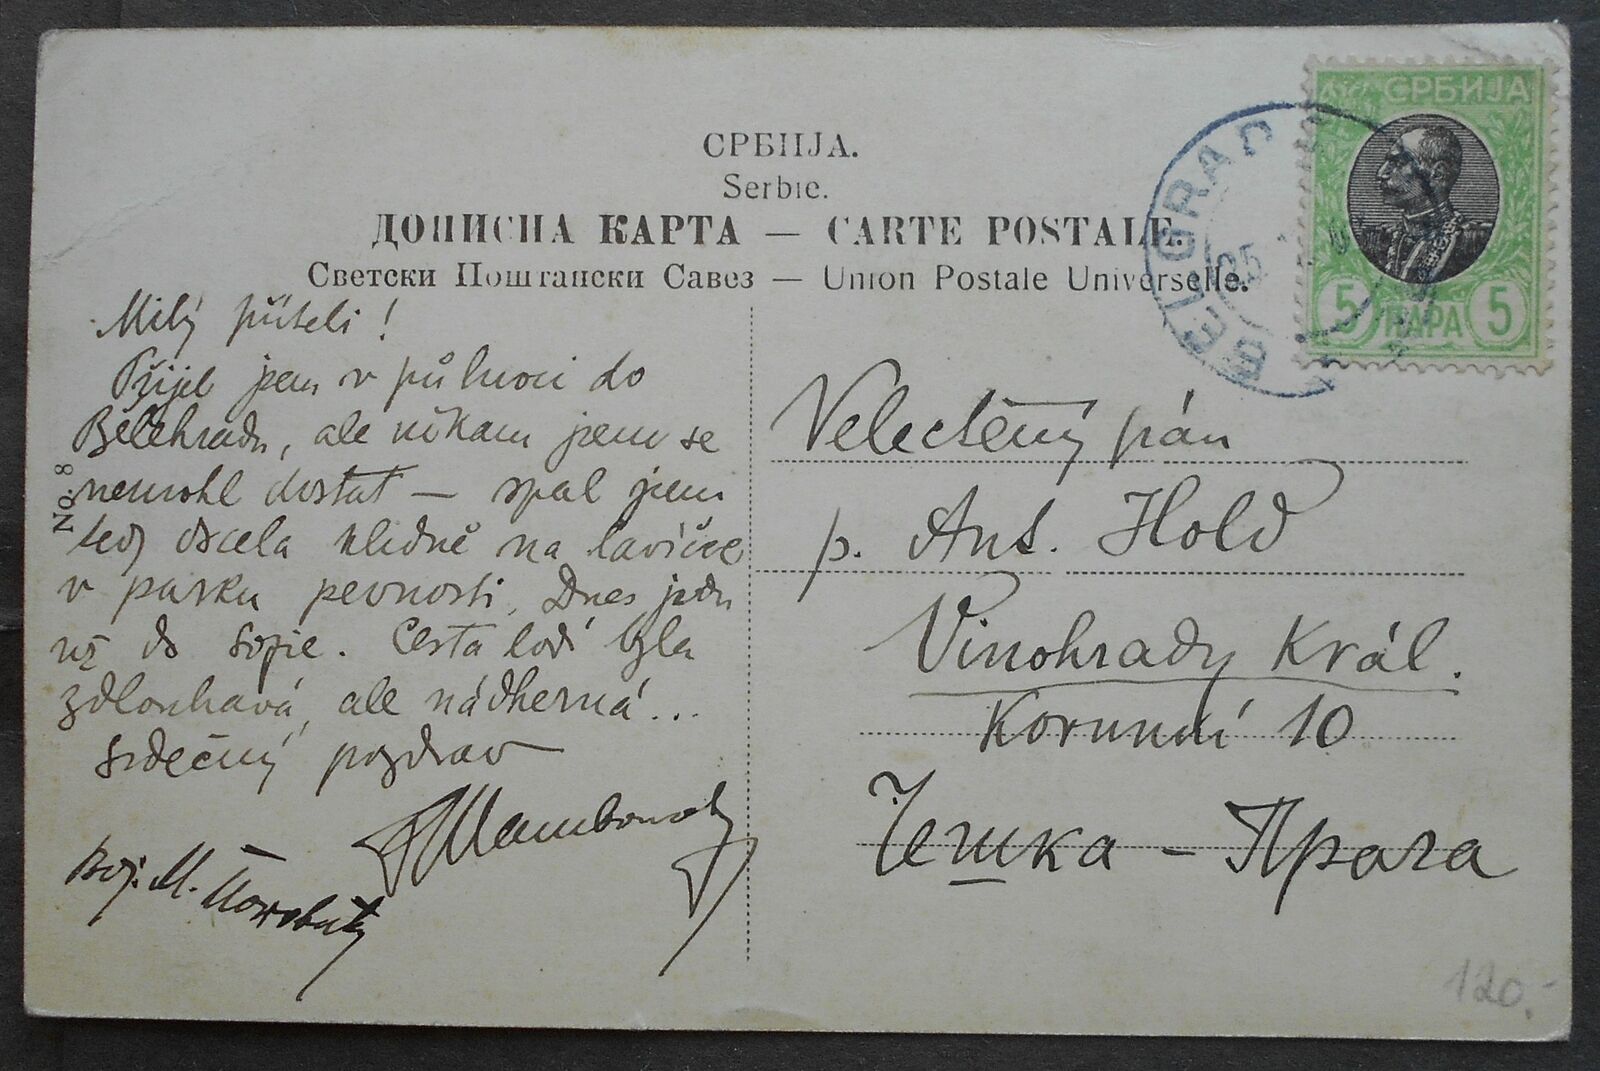 СРБИЈА.
Serbie.
ДОПИСНА КАРТА — CARTE POSTALE.
Светски Поштански Савез — Union Postale Universelle.
No. 8
Milý příteli!
Přijel jsem v půlnoci do
Bělehradu, ale nikam jsem se
nemohl dostat — spal jsem
tedy docela klidně na lavičce
v parku pevnosti. Dnes jedu
už do Sofie. Cesta lodí byla
zdlouhavá, ale nádherná...
Srdečný pozdrav
M.
Velectěný pán
p. Ant. Hold
Vinohrady Král.
Korunní 10
Чешка - Прага
СРБИЈА
5 ПАРА 5
BELGRAD
25
120.-